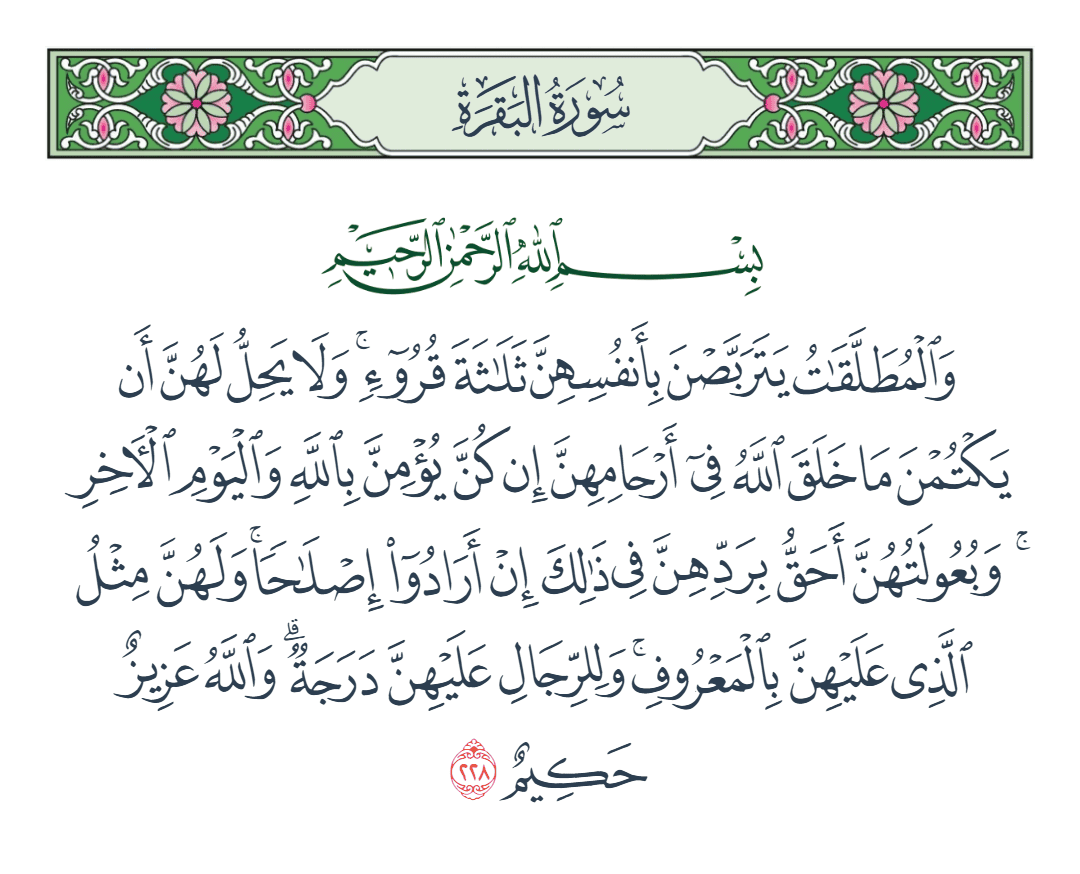 سُورَةُ البَقَرَةِ
بِسْمِ ٱللَّهِ ٱلرَّحْمَٰنِ ٱلرَّحِيمِ
وَٱلْمُطَلَّقَٰتُ يَتَرَبَّصْنَ بِأَنفُسِهِنَّ ثَلَٰثَةَ قُرُوٓءٍ ۚ وَلَا يَحِلُّ لَهُنَّ أَن
يَكْتُمْنَ مَا خَلَقَ ٱللَّهُ فِىٓ أَرْحَامِهِنَّ إِن كُنَّ يُؤْمِنَّ بِٱللَّهِ وَٱلْيَوْمِ ٱلْـَٔاخِرِ
ۚ وَبُعُولَتُهُنَّ أَحَقُّ بِرَدِّهِنَّ فِى ذَٰلِكَ إِنْ أَرَادُوٓا۟ إِصْلَٰحًا ۚ وَلَهُنَّ مِثْلُ
ٱلَّذِى عَلَيْهِنَّ بِٱلْمَعْرُوفِ ۚ وَلِلرِّجَالِ عَلَيْهِنَّ دَرَجَةٌ ۗ وَٱللَّهُ عَزِيزٌ
حَكِيمٌ ٢٢٨